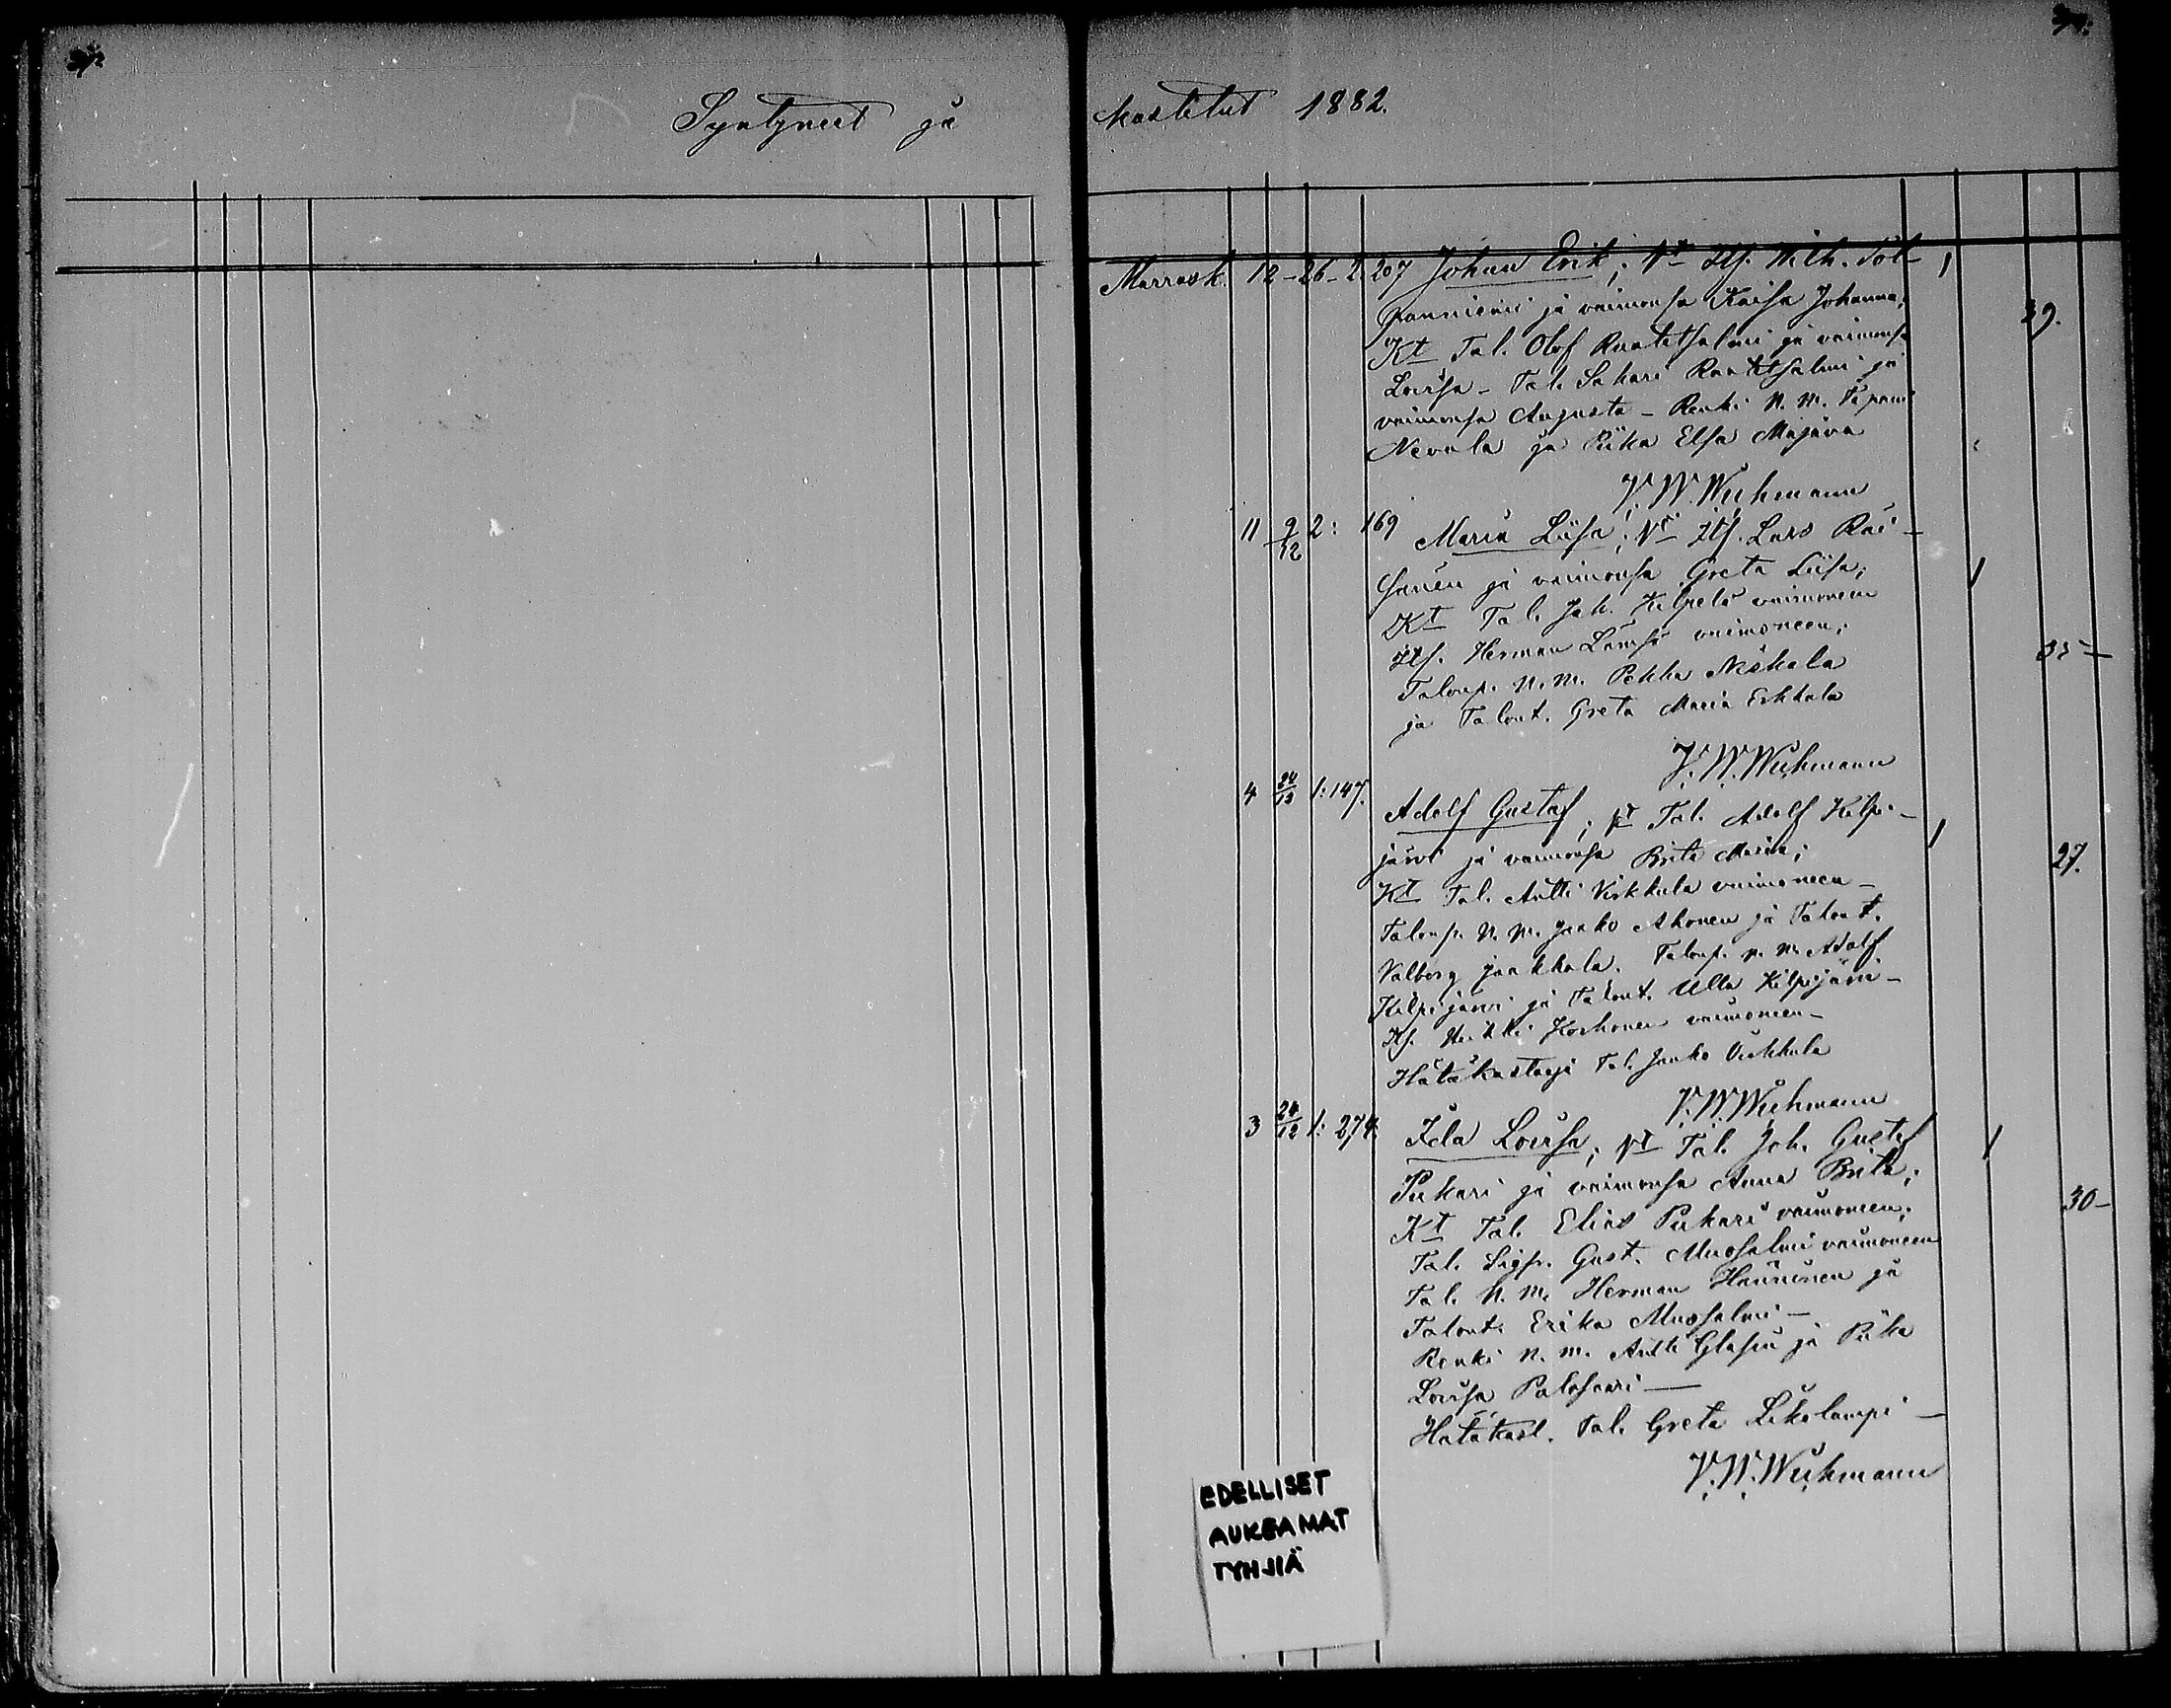 Syntyneet ja kastetut 1882.
Marrask. 12 - 26 - 2.207 Johan Erik; Vt Itf. Wilh. Töl-
panniemi ja vaimonsa Kaisa Johanna;
39.
Kt Tal. Olof Raatetsalmi ja vaimonsa
Lovisa - Tal. Sakari Raatetsalmi ja
vaimonsa Augusta - Renki N. M. Tapani
Nevala ja Piika Elsa Majava
V. W. Wichmann
11 9/12 2: 169 Maria Liisa; Vt Itf. Lars Räi-
sänen ja vaimonsa Greta Liisa;
Kt Tal. Joh. Kilpelä vaimoneen
Itf. Herman Lämsä vaimoneen;
Talonp. N. M. Pekka Niskala
ja Talont. Greta Maria Erkkala
V. W. Wichmann
4 24/12 1:147. Adolf Gustaf; Vt Tal. Adolf Kilpi-
järvi ja vaimonsa Brita Maria;
27.
Kt Tal. Antti Virkkula vaimoneen -
Talonp. N. M. Jaako Ahonen ja Talont.
Valborg Jaakkola. Talonp. N. M. Adolf
Kilpijärvi ja Talont. Ulla Kilpijärvi -
Itf. Heikki Korhonen vaimoneen -
Hätäkastaja Tal. Jaako Virkkula
V. W. Wichmann
3 24/12 1: 274. Ida Lovisa; Vt Tal. Joh. Gustaf
Pukari ja vaimonsa Anna Brita;
30-
Kt Tal. Elias Pukari vaimoneen;
Tal. Sigfr. Gust. Muosalmi vaimoneen
Tal. N. M. Herman Hänninen ja
Talont. Erika Muosalmi -
Renki N. M. Antti Glasin ja Piika
Lovisa Palosaari -
Hätäkast. Tal. Greta Likolampi -
V. W. Wichmann
EDELLISET
AUKEAMAT
TYHJIÄ